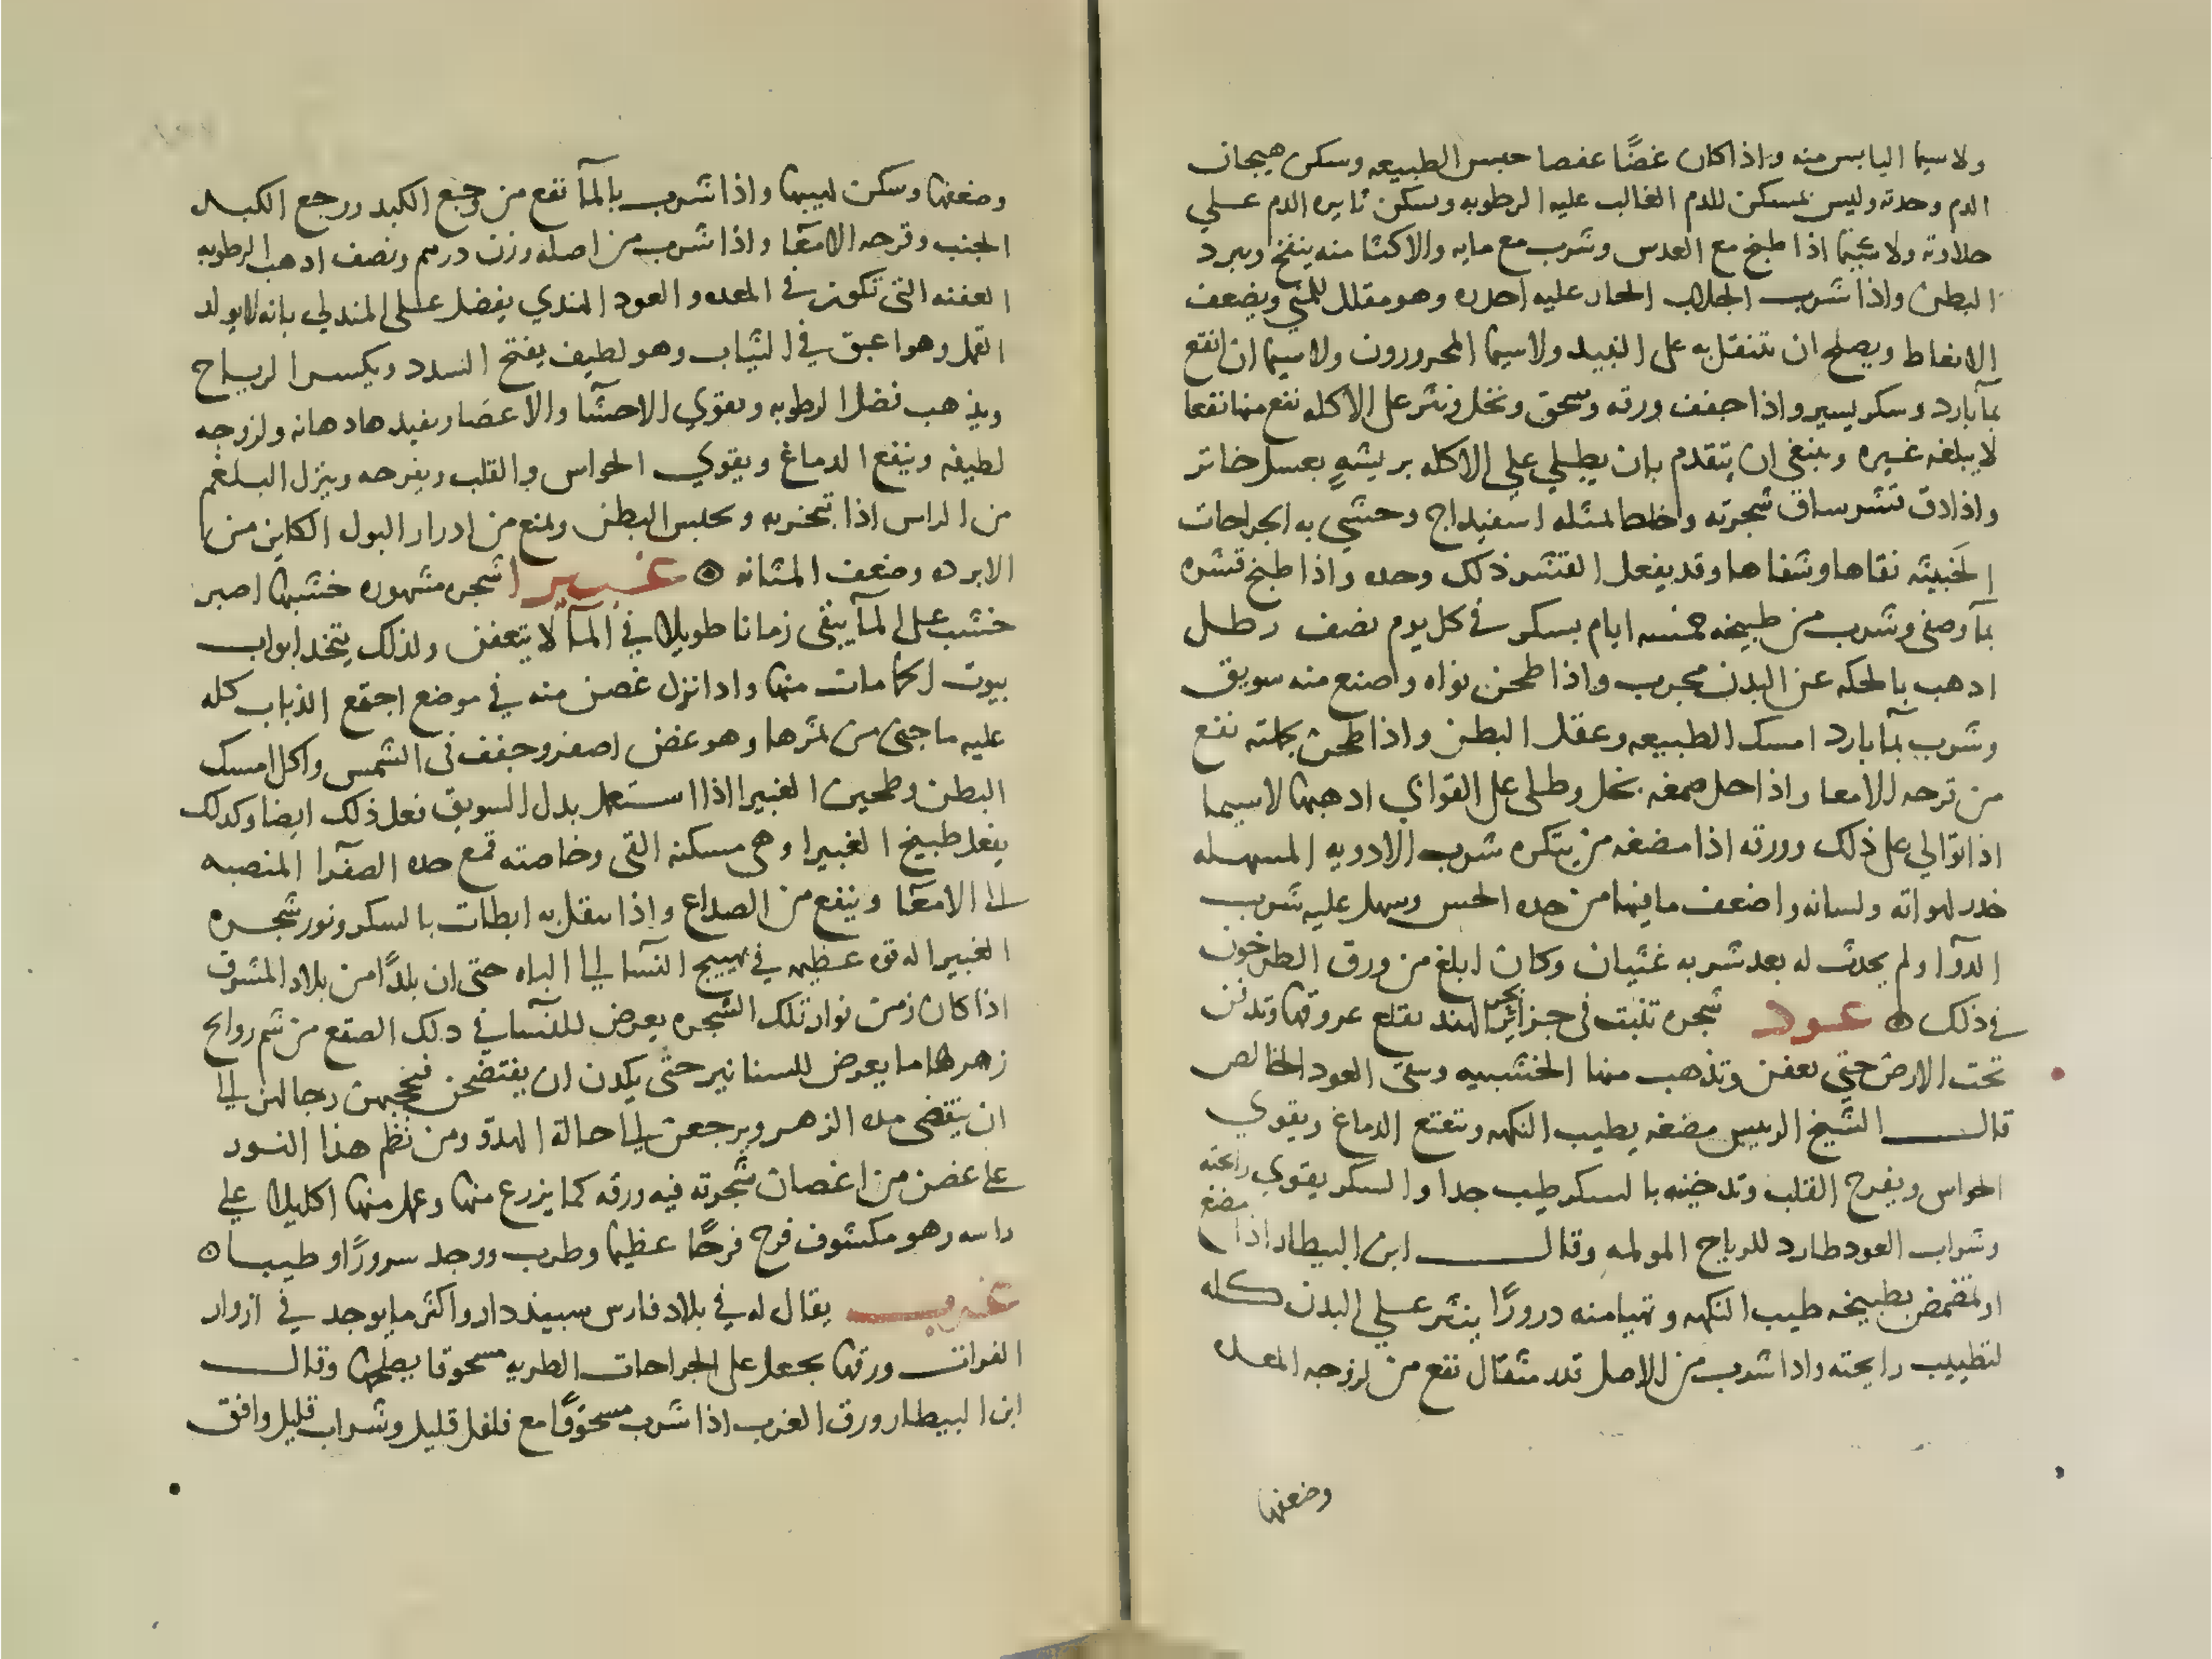 ولا سيما اليابس منه واذا كان غضًا عفصا حبس الطبيعه وسكن هيجان
الدم وحدته وليس بمسكن للدم الغالب عليه الرطوبه ويسكن ثايره الدم علي
حلاوته ولا سيما اذا طبخ مع العدس وشرب مع مايه والاكثار منه ينفخ ويبرد
البطن واذا شرب الجلاب الحار عليه احدره وهو مقلل للمني ويضعف
الانعاط ويصلح ان يتنقل به على النبيد ولا سيما المحرورون ولا سيما ان انقع
بمآ بارد وسكر يسير واذا جفف ورقه وسحق ونخل ونثر على الاكله نفع منها نفعا
لا يبلغه غيره وينبغي ان يتقدم بان يطلي علي الاكله بريشهٍ بعسل خاثر
واذا دق قشر ساق شجرته وخلط بمثله اسفيداج وحشي به الجراحات
الخبيثه نقاها وشفاها وقد يفعل القشر ذلك وحده واذا طبخ قشره
بمآ وصفي وشرب من طبيخه خمسه ايام بسكر في كل يوم نصف رطل
ادهب بالحكه عن البدن مجرب واذا طحن نواه وصنع منه سويق
وشرب بمآ بارد امسك الطبيعه وعقل البطن واذا طحن بجملته نفع
من قرحه الامعا واذا حل صمغه بخل وطلي على القوابي ادهبها لا سيما
اذا توالي على ذلك وورقه اذا مضغه من يتكره شرب الادويه المسهله
خدر لهواته ولسانه واضعف ما فيها من حده الحس وسهل عليه شرب
الدوآ ولم يحدث له بعد شربه غثيان وكان ابلغ من ورق الطرخون
في ذلك ۞ عود شجره تنبت في جزاير بحر الهند تقلع عروقها وتدفن
تحت الارض حتي تعفن وتذهب منها الخشبيه ويبقي العود الخالص
قال الشيخ الرييس مضغه يطيب النكهه وينفع الدماغ ويقوي
الحواس ويفرح القلب وتدخينه بالسكر طيب جدا والسكر يقوي رايحته
وشراب العود طارد للرياح المولمه وقال ابن البيطار اذا مضغ
او تمضمض بطبيخه طيب النكهه وتهيا منه درورًا ينثر علي البدن كله
لتطييب رايحته واذا شرب من الاصل قدر مثقال نفع من لزوجه المعده
وضعفها
وضعفها وسكن لهيبها واذا شرب بالمآ نفع من وجع الكبد ووجع الكبد
الجنب وقرحه الامعآ واذا شرب من اصله وزن درهم ونصف ادهب الرطوبه
العفنه التي تكون في المعده والعود الهندي يفضل علي المندلي بانه لا يولد
القمل وهو اعبق في الثياب وهو لطيف يفتح السدد ويكسر الرياح
ويذهب فضل الرطوبه ويقوي الاحشآ والاعضا ويفيدها دهانه ولزوجه
لطيفه وينفع الدماغ ويقوي الحواس والقلب ويفرحه وينزل البلغم
من الراس اذا تبخر به ويحبس البطن ويمنع من ادرار البول الكاين من
الابرده وضعف المثانه ۞ غبيرا شجره مشهوره خشبها اصبر
خشب على المآ يبقى زمانا طويلا في المآ لا يتعفن ولذلك يتخد ابواب
بيوت الحمامات منها وادا نزل غصن منه في موضع اجتمع الذباب كله
عليه ما جنى من ثمرها وهو غض اصفر وجفف في الشمس واكل امسك
البطن وطحين الغبيرا اذا استعمل بدل السويق فعل ذلك ايضا وكدلك
يفعل طبيخ الغبيرا وهي مسكنه القي وخاصته قمع حده الصفرآ المنصبه
الى الامعآ وينفع من الصداع واذا تنقل به ابطات بالسكر ونور شجره
الغبيرا له قوه عظيمه في تهييج النسآ الي الباه حتى ان بلدًا من بلاد المشرق
اذا كان زمن نوار تلك الشجره يعرض للنسآ في دلك الصقع من شم روايح
زهرها ما يعرض للسنانير حتى يكدن ان يفتضحن فيحجبهن رجالهن الي
ان ينقضي مده الزهر ويرجعن الي حالة الهدو ومن نظم هذا النور
على غصن من اغصان شجرته فيه ورقه كما يزرع منها وعمل منها اكليلا علي
راسه وهو مكشوف فرح فرحًا عظيما وطرب ووجد سرورًا وطيبا ۞
غرب يقال له في بلاد فارس سبيددار واكثر ما يوجد في ازوار
الفرات ورقها يجعل على الجراحات الطريه مسحوقا يصلحها وقال
ابن البيطار ورق الغرب اذا شرب مسحوقًا مع فلفل قليل وشراب قليل وافق